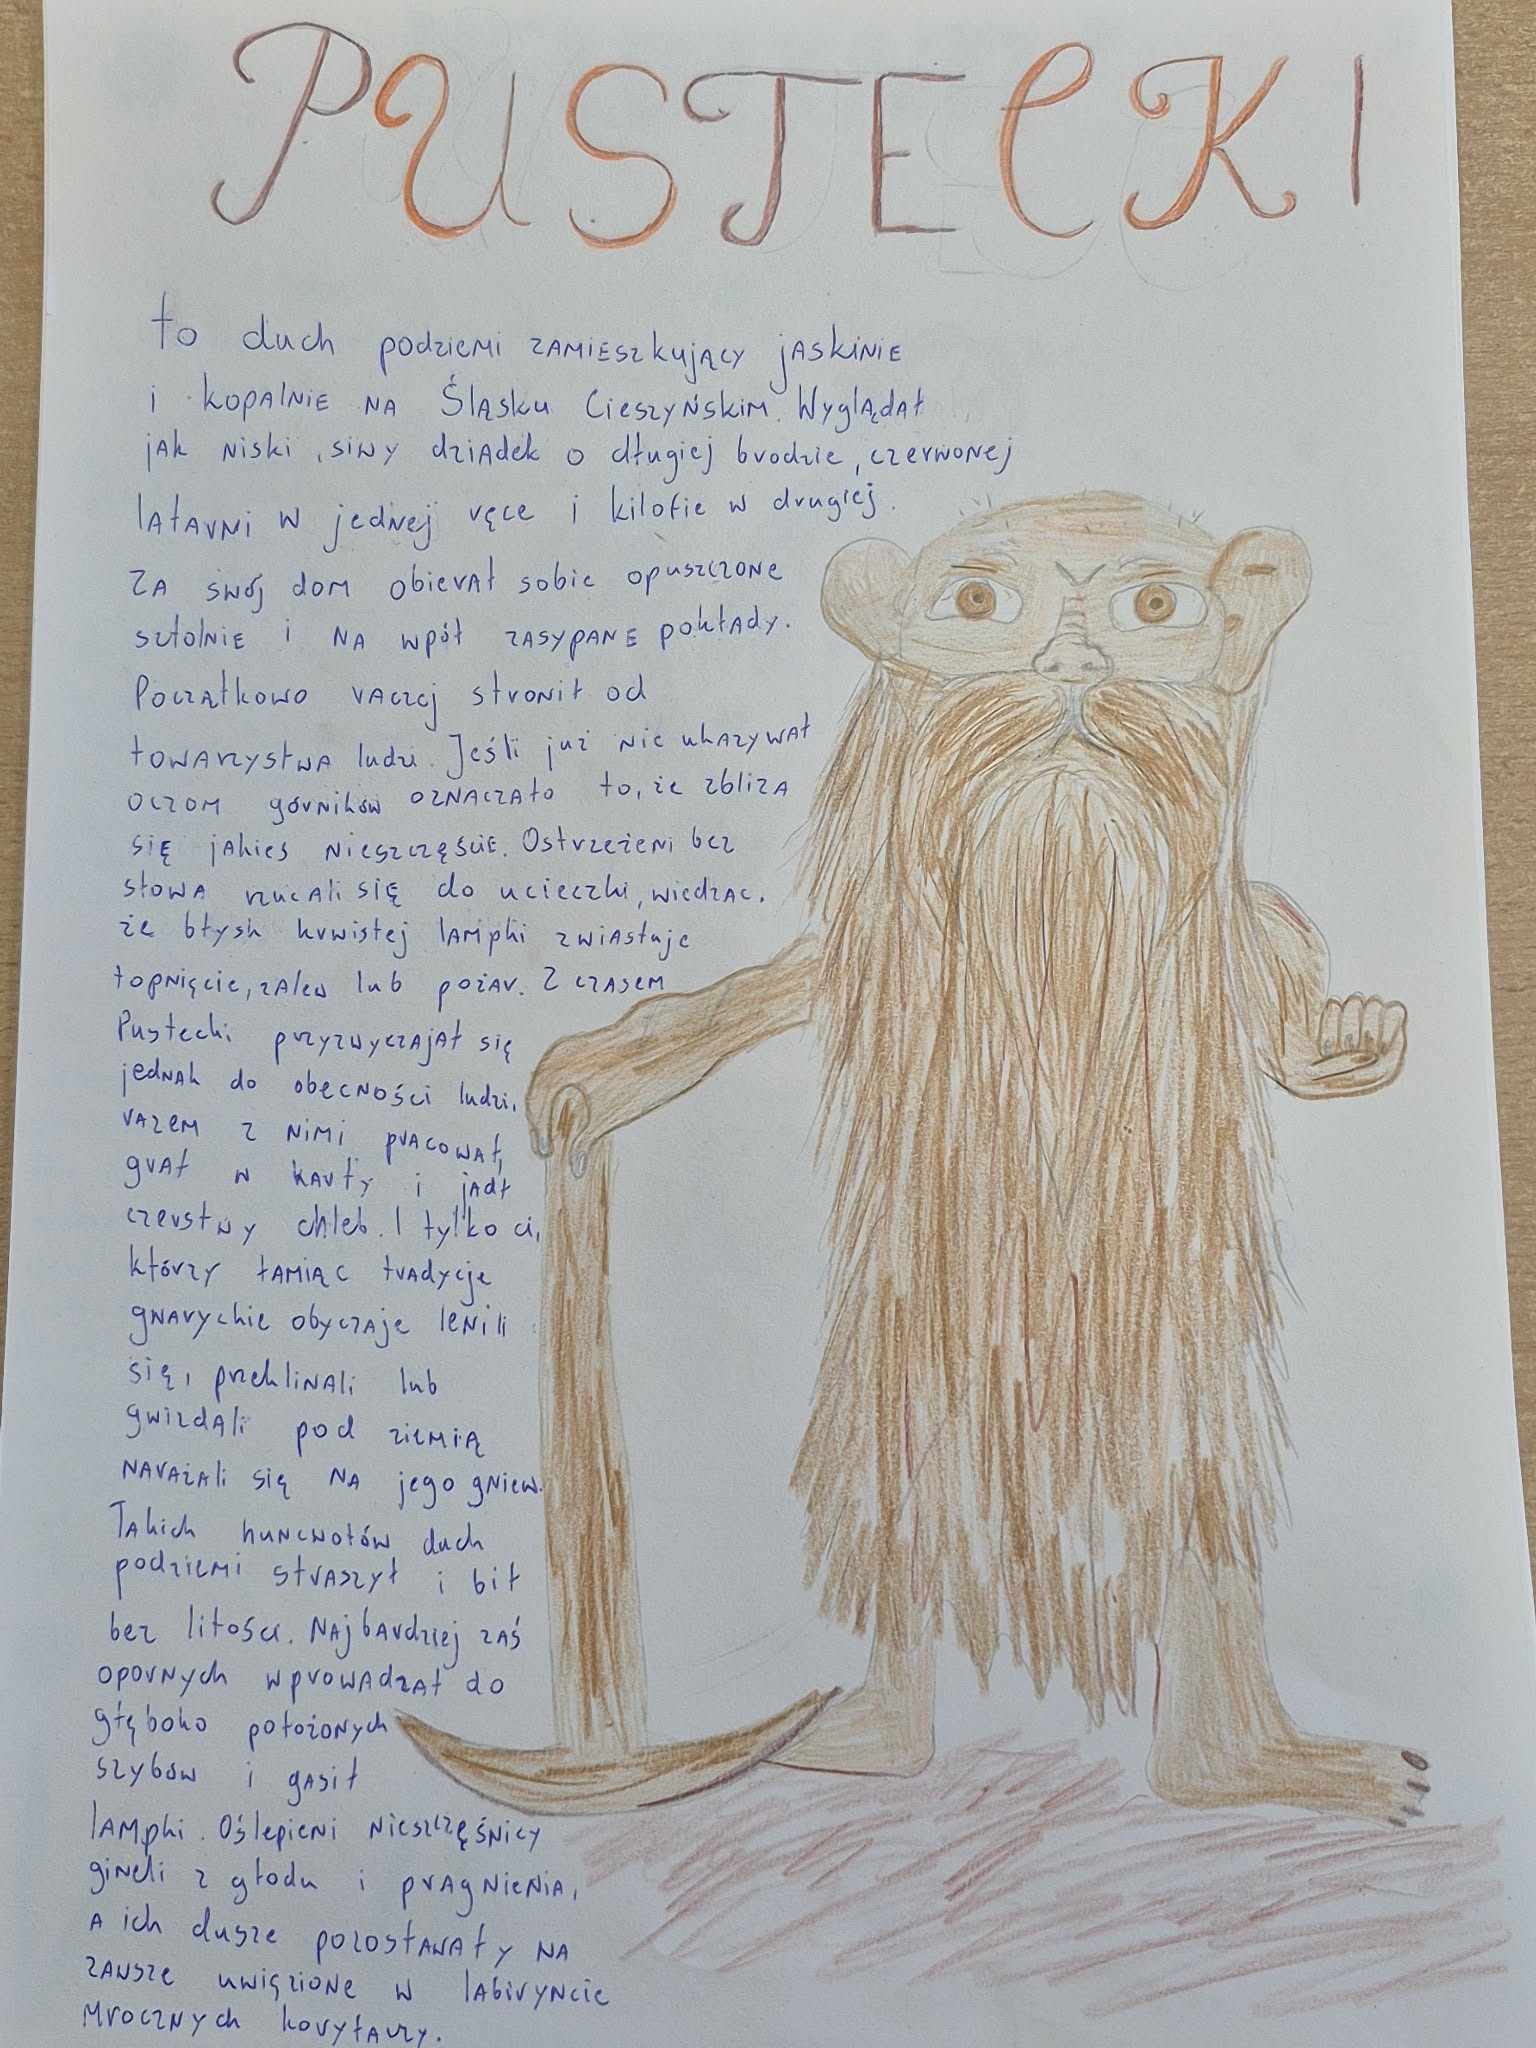 PUSTECKI
to duch podziemi zamieszkujący jaskinie
i kopalnie na Śląsku Cieszyńskim. Wyglądał
jak niski, siwy dziadek o długiej brodzie, czerwonej
latarni w jednej ręce i kilofie w drugiej.
Za swój dom obierał sobie opuszczone
sztolnie i na wpół zasypane pokłady.
Początkowo raczej stronił od
towarzystwa ludzi. Jeśli już nie ukazywał
oczom górników oznaczało to, że zbliża
się jakieś nieszczęście. Ostrzeżeni bez
słowa rzucali się do ucieczki, wiedząc.
że błysk krwistej lampki zwiastuje
topnięcie, zalew lub pożar. Z czasem
Pustecki przyzwyczajał się
jednak do obecności ludzi,
razem z nimi pracował,
grał w karty i jadł
czerstwy chleb. I tylko ci,
którzy łamiąc tradycje
gwarychie obyczaje lenili
się, przeklinali lub
gwizdali pod ziemią
narażali się na jego gniew.
Takich huncwotów duch
podziemi straszył i bił
bez litości. Najbardziej zaś
opornych wprowadzał do
głęboko położonych
szybów i gasił
lampki. Oślepieni nieszczęśnicy
ginęli z głodu i pragnienia,
a ich dusze pozostawały na
zawsze uwięzione w labiryncie
mrocznych korytarzy.